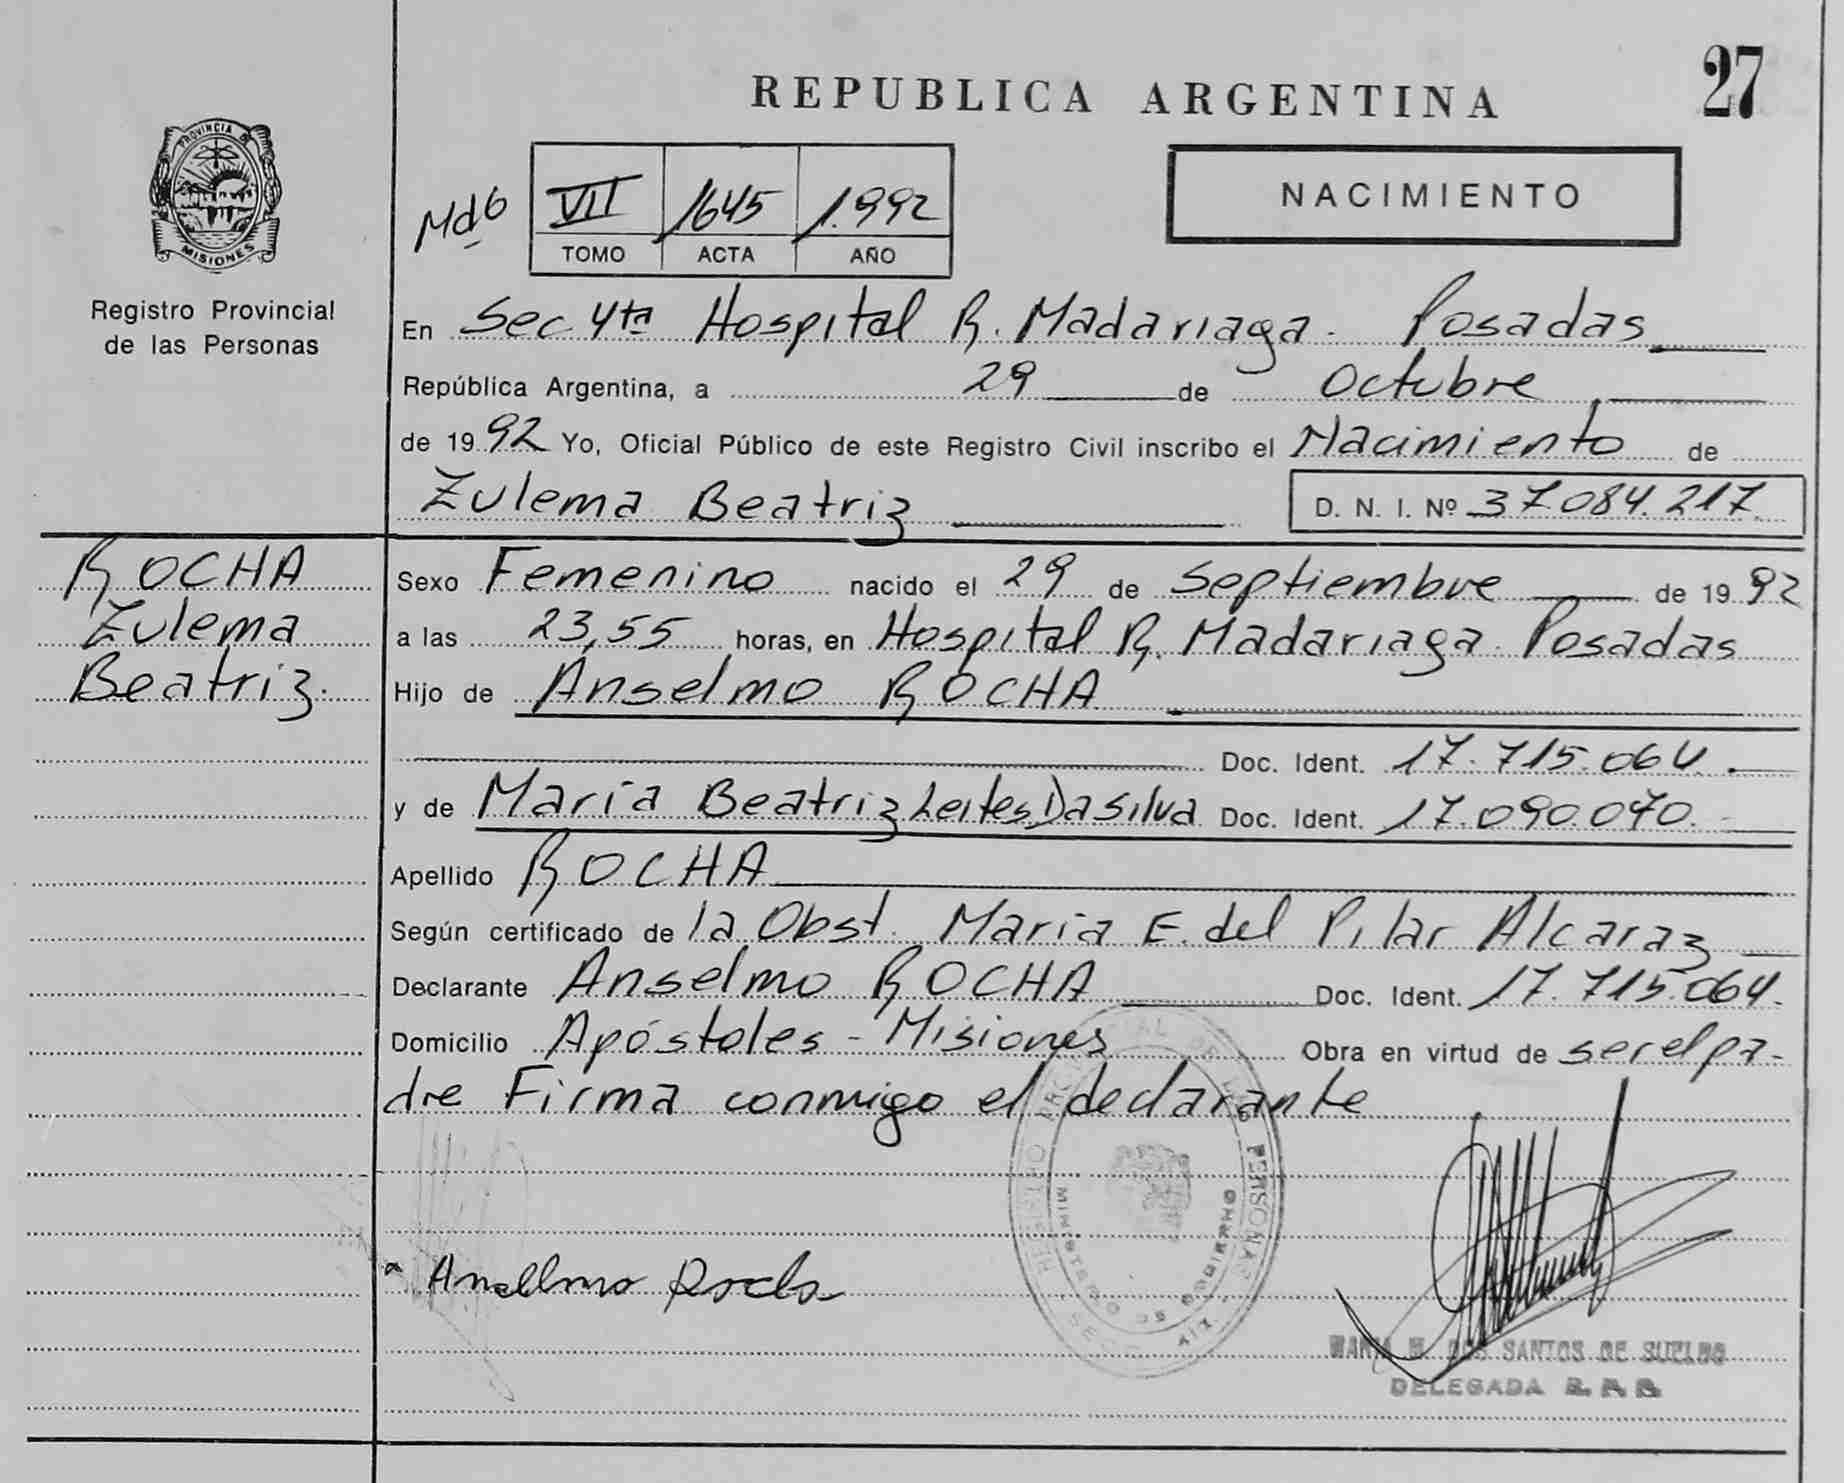 27
REPUBLICA ARGENTINA
PROVINCIA DE
MISIONES
Registro Provincial
de las Personas
VII 1645 1.992
TOMO ACTA AÑO
NACIMIENTO
En Sec 4ta Hospital R. Madariaga. Posadas
República Argentina, a 29 de Octubre
de 1992 Yo, Oficial Público de este Registro Civil inscribo el Nacimiento de
Zulema Beatriz D. N. I. Nº 37.084.217.
ROCHA
Zulema
Beatriz.
Sexo Femenino nacido el 29 de Septiembre de 1992
a las 23,55 horas, en Hospital R. Madariaga. Posadas
Hijo de Anselmo ROCHA
Doc. Ident. 17.715.064.
y de María Beatriz Leites Da Silva Doc. Ident. 17.090.070.
Apellido ROCHA
Según certificado de la Obst. María E. del Pilar Alcaraz
Declarante Anselmo ROCHA Doc. Ident. 17.715.064.
Domicilio Apóstoles - Misiones Obra en virtud de ser el pa-
dre Firma conmigo el declarante
REGISTRO PROVINCIAL DE LAS PERSONAS
MINISTERIO DE GOBIERNO
Anselmo Rocha
DOS SANTOS DE SUELDO
DELEGADA